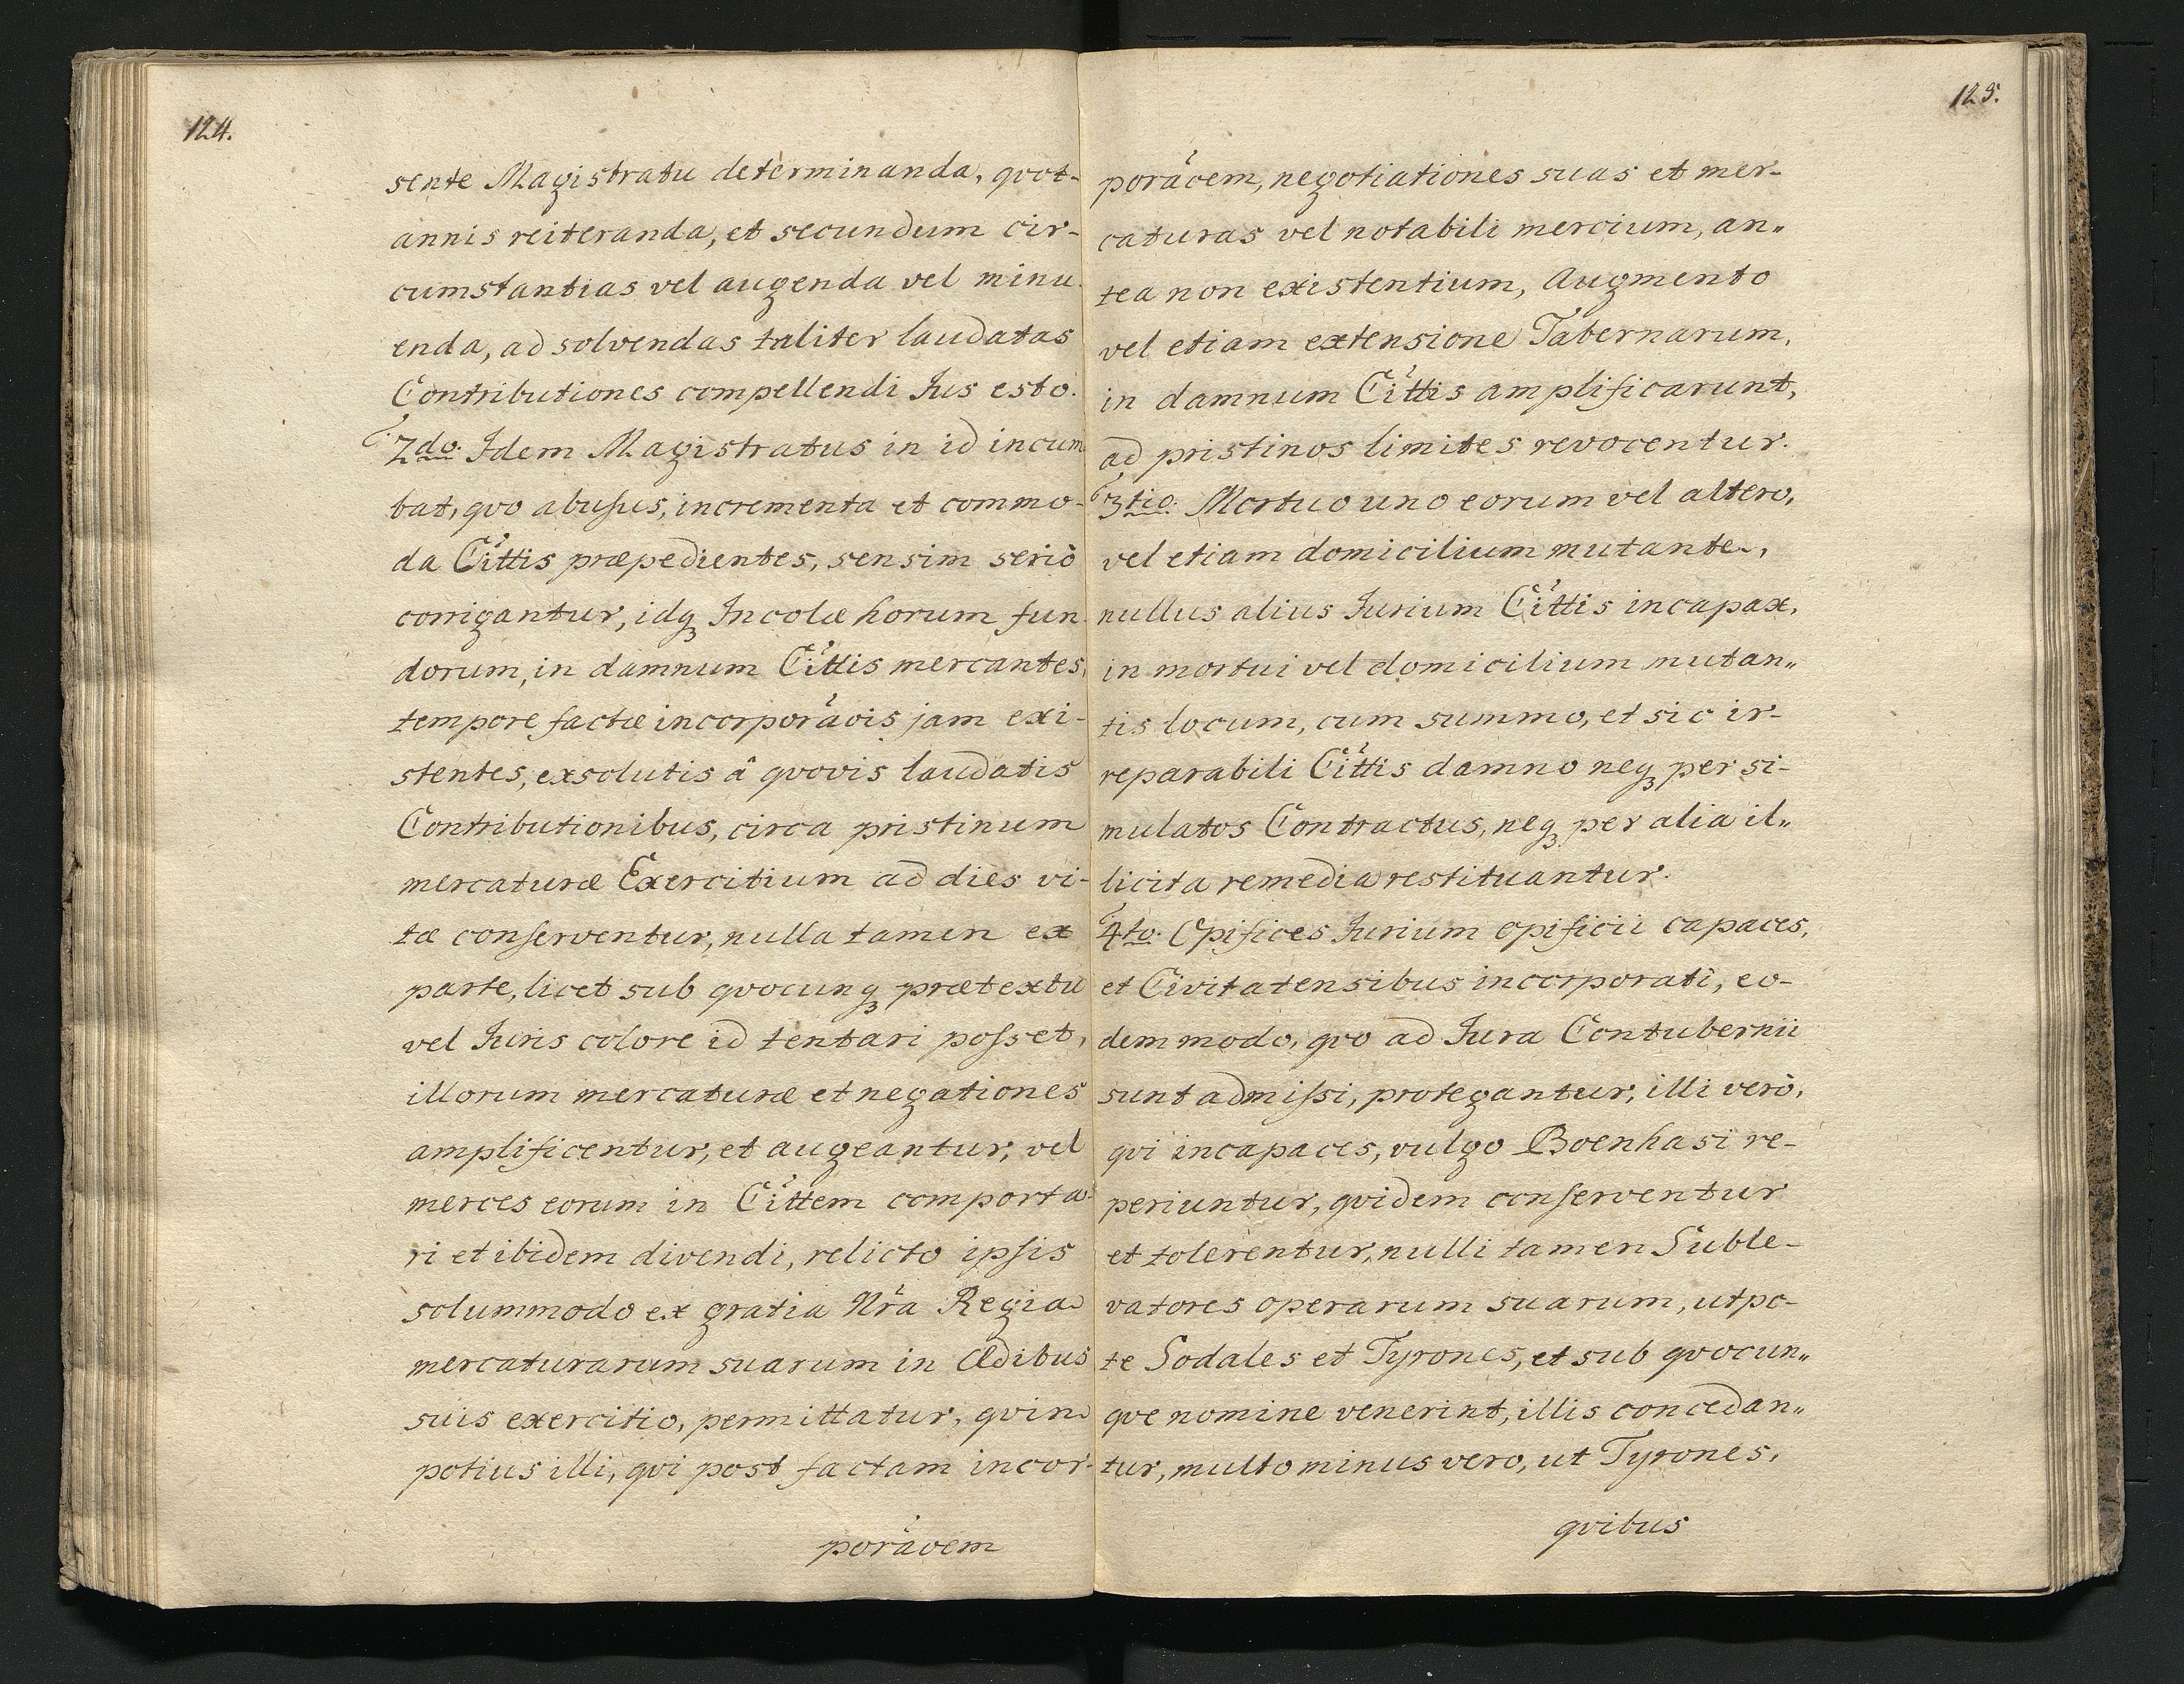 124.
sente Magistratu determinanda, qvot-
annis reiteranda, et secundum cir-
cumstantias vel augenda vel minu
enda, ad solvendas taliter laudatas
Contributiones compellendi Jus esto.
2do. Idem Magistratus in id incum
bat, qvo abusus, incrementa et commo-
da Cittis præpedientes, sensim seriò
corrigantur, idq Incolæ horum fun
dorum, in damnum Cittis mercantes,
tempore factæ incorporãois jam exi-
stentes, exsolutis â qvovis laudatis
Contributionibus, circa pristinum
mercaturæ Exercitium ad dies vi-
tæ conserventur, nulla tamen ex
parte, licet sub qvocunq prætextu
vel Juris colore id tentari posset,
illorum mercaturæ et negationes
amplificentur, et augeantur, vel
merces eorum in Cittem comporta-
ri et ibidem divendi, relicto ipsis
solummodo ex gratia Nra Regia
mercaturarum suarum in Ædibus
suis exercitio, permittatur, qvin
potius illi, qvi post factam incor-
porãoem
125.
porãoem, negotiationes suas et mer-
caturas vel notabili mercium, an„
tea non existentium, Augmento
vel etiam extensione Tabernarum,
in damnum Cittis amplificarunt,
ad pristinos limites revocentur.
3tio. Mortuo uno eorum vel altero,
vel etiam domicilium mutante,
nullus alius Jurium Cittis incapax,
in mortui vel domicilium mutan„
tis locum, cum summo, et sic ir-
reparabili Cittis damno neq per si-
mulatos Contractus, neq per alia il„
licita remedia restituantur.
4to. Opifices Jurium opificii capaces,
et Civitatensibus incorporati, eo-
dem modo, qvo ad Jura Contubernii
sunt admissi, protegantur, illi verò,
qvi incapaces, vulgo Boenhasi re-
periuntur, qvidem conserventur
et tolerentur, nulli tamen Suble-
vatores operarum suarum, utpo-
te Sodales et Tyrones, et sub qvocun„
qve nomine venerint, illis concedan„
tur, multo minus vero, ut Tyrones,
qvibus